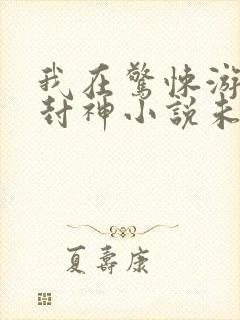 我在驚悚游
封神小説未
夏壽康